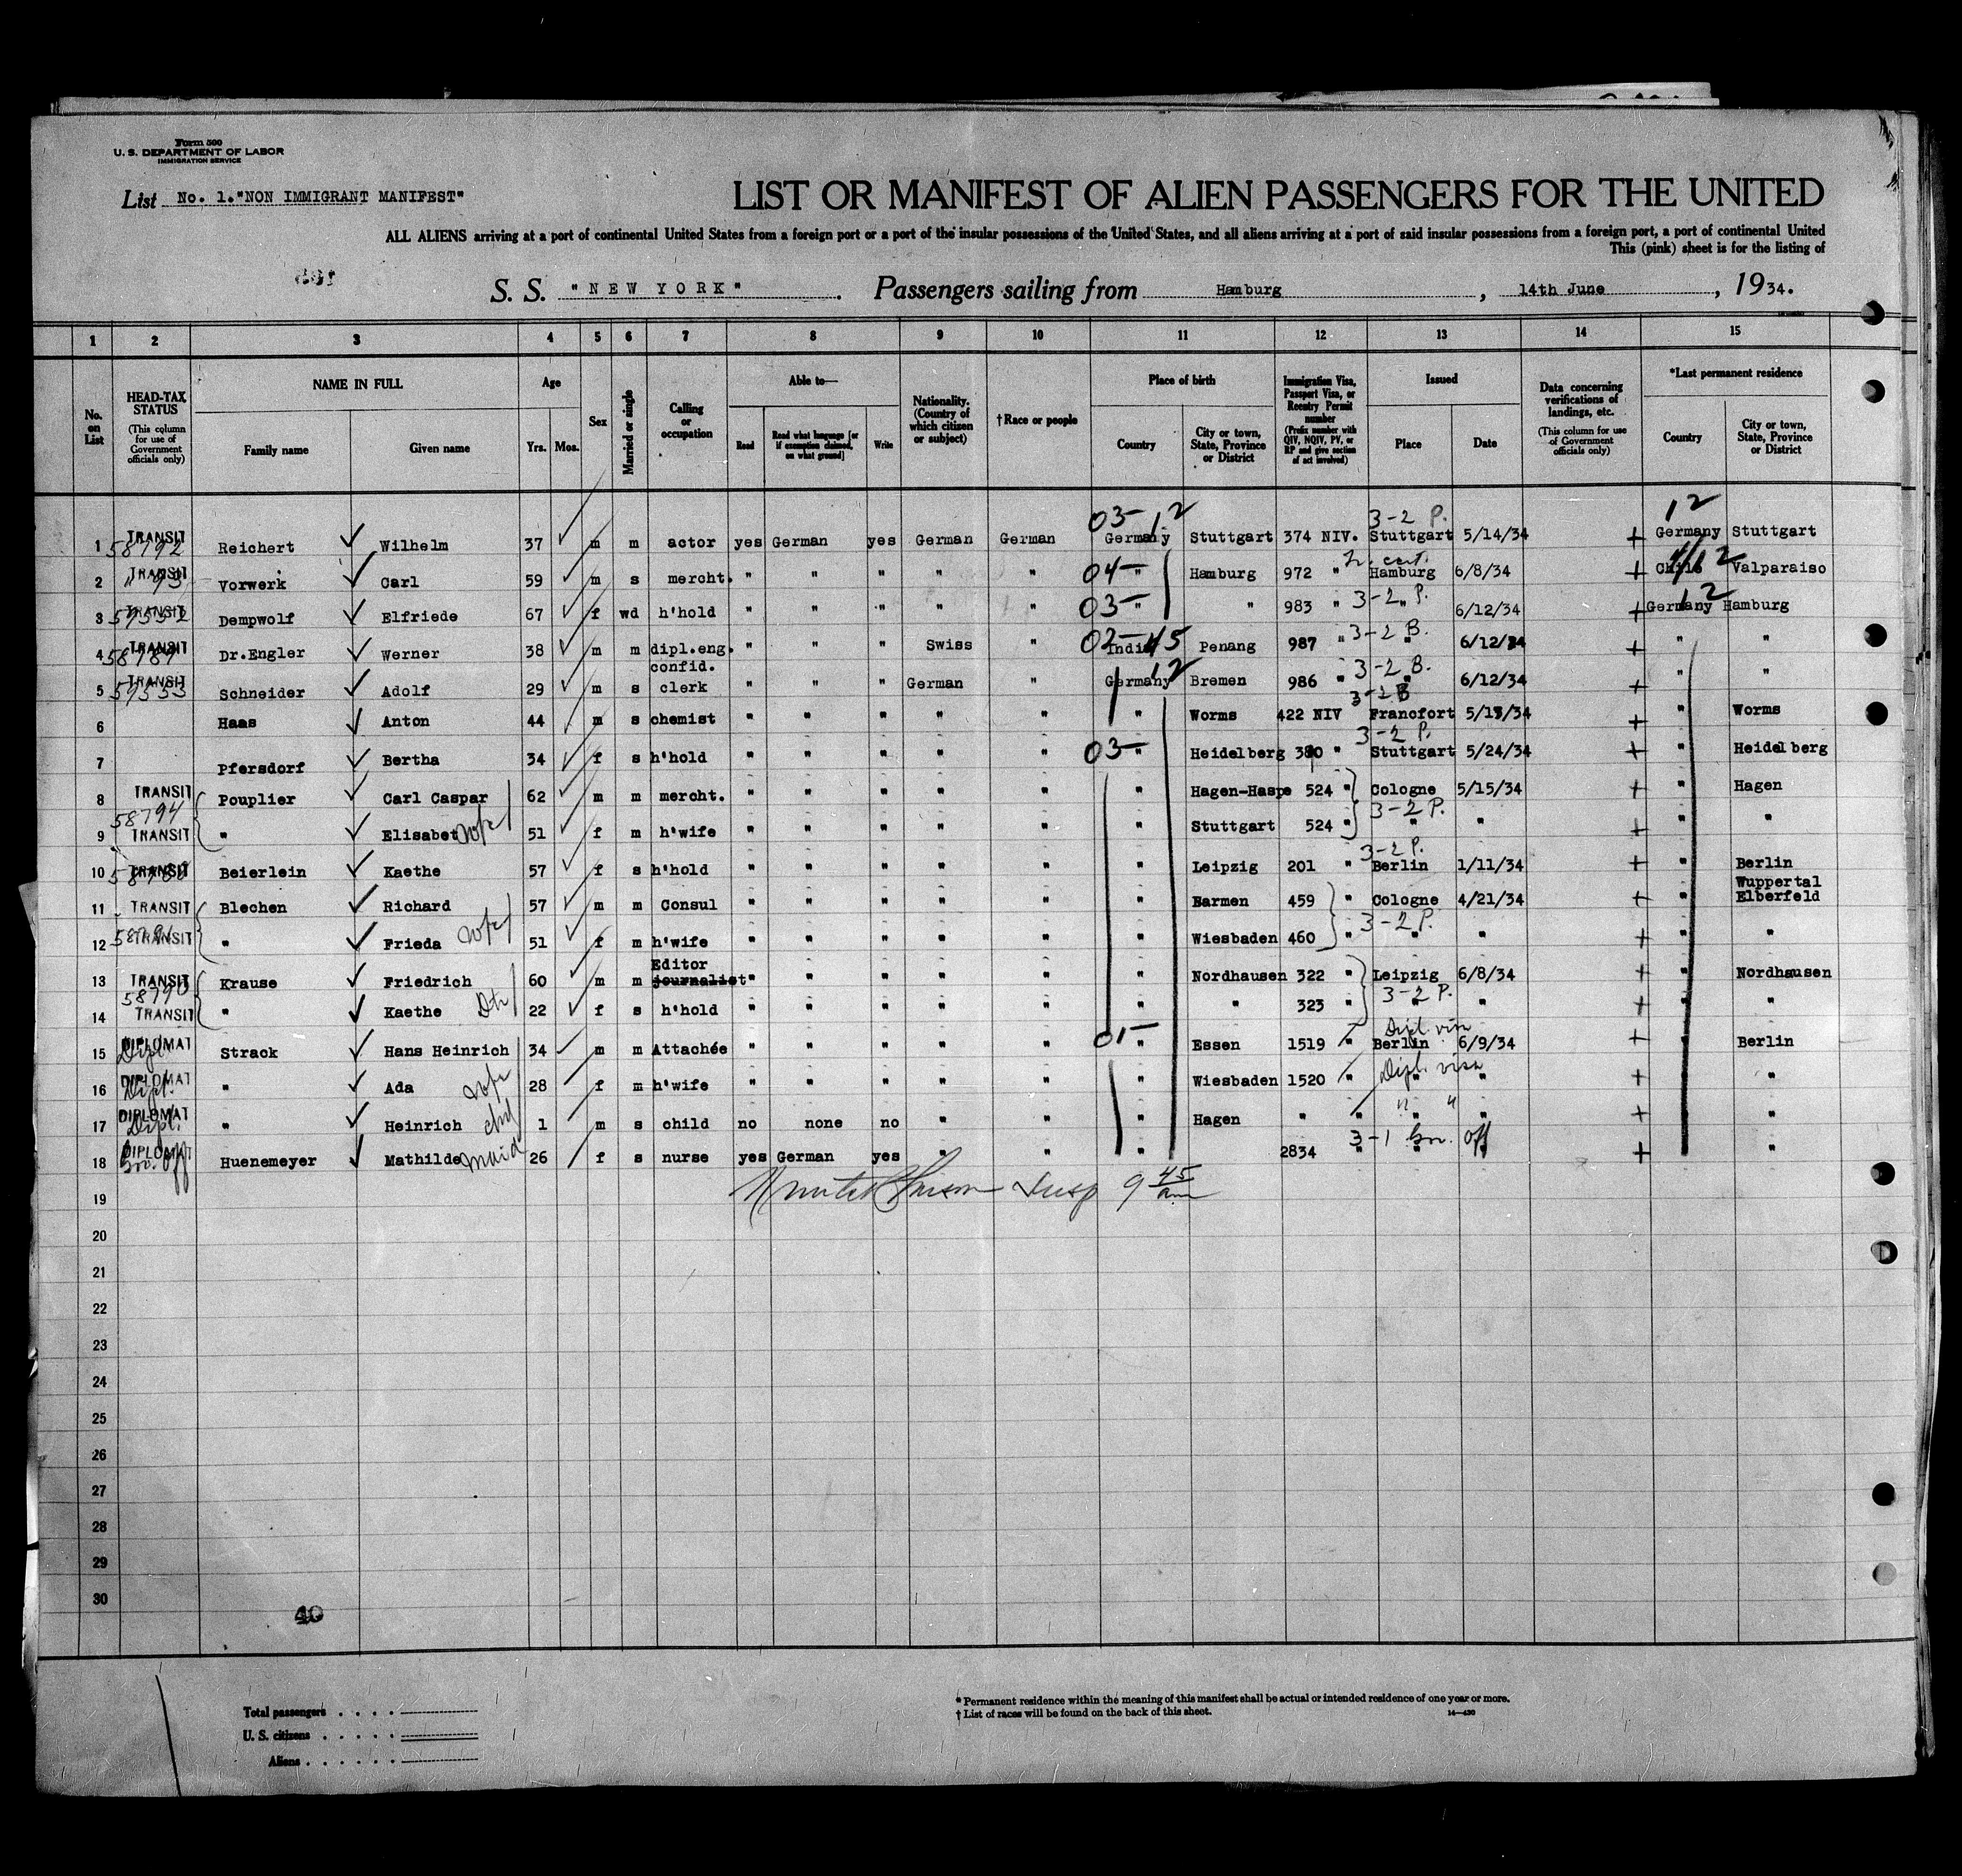 Form 500
U. S. DEPARTMENT OF LABOR
IMMIGRATION SERVICE
List No. 1."NON IMMIGRANT MANIFEST"
LIST OR MANIFEST OF ALIEN PASSENGERS FOR THE UNITED
ALL ALIENS arriving at a port of continental United States from a foreign port or a port of the insular possessions of the United States, and all aliens arriving at a port of said insular possessions from a foreign port, a port of continental United
This (pink) sheet is for the listing of
S. S. "NEW YORK" . Passengers sailing from Hamburg , 14th June , 1934.
1 2 3 4 5 6 7 8 9 10 11 12 13 14 15
No. on List
HEAD-TAX STATUS (This column for use of Government officials only)
NAME IN FULL Family name Given name
Age Yrs. Mos.
Sex
Married or single
Calling or occupation
Able to— Read Read what language [or if exemption claimed, on what ground] Write
Nationality. (Country of which citizen or subject)
†Race or people
Place of birth Country City or town, State, Province or District
Immigration Visa, Passport Visa, or Reentry Permit number (Prefix number with QIV, NQIV, PV, or RP and give section of act involved)
Issued Place Date
Data concerning verifications of landings, etc. (This column for use of Government officials only)
*Last permanent residence Country City or town, State, Province or District
03- 12 3-2 P. 12
1 TRANSIT 58792 Reichert Wilhelm 37 m m actor yes German yes German German Germany Stuttgart 374 NIV. Stuttgart 5/14/34 + Germany Stuttgart
2 TRANSIT " 93 Vorwerk Carl 59 m s mercht. " " " " " 04- " Hamburg 972 " Hamburg 6/8/34 + Chile Valparaiso
3 TRANSIT Dempwolf Elfriede 67 f wd h'hold " " " " " 03- " " 983 " 3-2 P. " 6/12/34 + Germany 12 Hamburg
4 TRANSIT Dr.Engler Werner 38 m m dipl.eng. " " " Swiss " Penang 987 " 3-2 B. 6/12/34 + " "
5 TRANSIT Schneider Adolf 29 m s confid. clerk " " " German " Germany 12 Bremen 986 " 3-2 B. " 6/12/34 + " "
6 Haas Anton 44 m s chemist " " " " " " Worms 422 NIV 3-2 B Francfort + " Worms
7 Pfersdorf Bertha 34 f s h'hold " " " " " 03- " Heidelberg 380 " 3-2 P. Stuttgart 5/24/34 + " Heidelberg
8 TRANSIT Pouplier Carl Caspar 62 m m mercht. " " " " " " Hagen-Haspe 524 " Cologne 5/15/34 + " Hagen
58794
9 TRANSIT " Elisabet wife 51 f m h'wife " " " " " " Stuttgart 524 " 3-2 P. " " + " "
10 TRANSIT Beierlein Kaethe 57 f s h'hold " " " " " " Leipzig 201 " 3-2 P. Berlin 1/11/34 + " Berlin
11 TRANSIT Blechen Richard 57 m m Consul " " " " " " Barmen 459 " Cologne 4/21/34 + " Wuppertal Elberfeld
12 TRANSIT " Frieda wife 51 f m h'wife " " " " " " Wiesbaden 460 3-2 P. " " + " "
13 TRANSIT Krause Friedrich 60 m m Editor journalist " " " " " " Nordhausen 322 " Leipzig 6/8/34 + " Nordhausen
58790
14 TRANSIT " Kaethe Dtr 22 f s h'hold " " " " " " " 323 " 3-2 P. " " + " "
15 DIPLOMAT Dipl. Strack Hans Heinrich 34 m m Attachée " " " " " 01- " Essen 1519 " Dipl. visa Berlin 6/9/34 + " Berlin
16 DIPLOMAT Dipl. " Ada wife 28 f m h'wife " " " " " " Wiesbaden 1520 " Dipl. visa " + " "
17 DIPLOMAT Dipl. " Heinrich chd 1 m s child no none no " " " Hagen " " " " " + " "
18 DIPLOMAT Gov. Off Huenemeyer Mathilde maid 26 f s nurse yes German yes " " " 2834 " 3-1 Gov. Off " + " "
Insp 9 45 am
19
20
21
22
23
24
25
26
27
28
29
30
40
Total passengers . . . .
U. S. citizens . . . . .
Aliens . . . . . .
* Permanent residence within the meaning of this manifest shall be actual or intended residence of one year or more.
† List of races will be found on the back of this sheet. 14—430